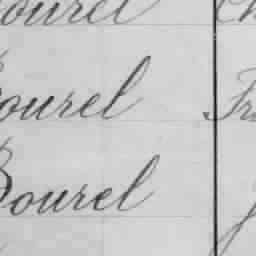 Bourel
Bourel Fr
Bourel